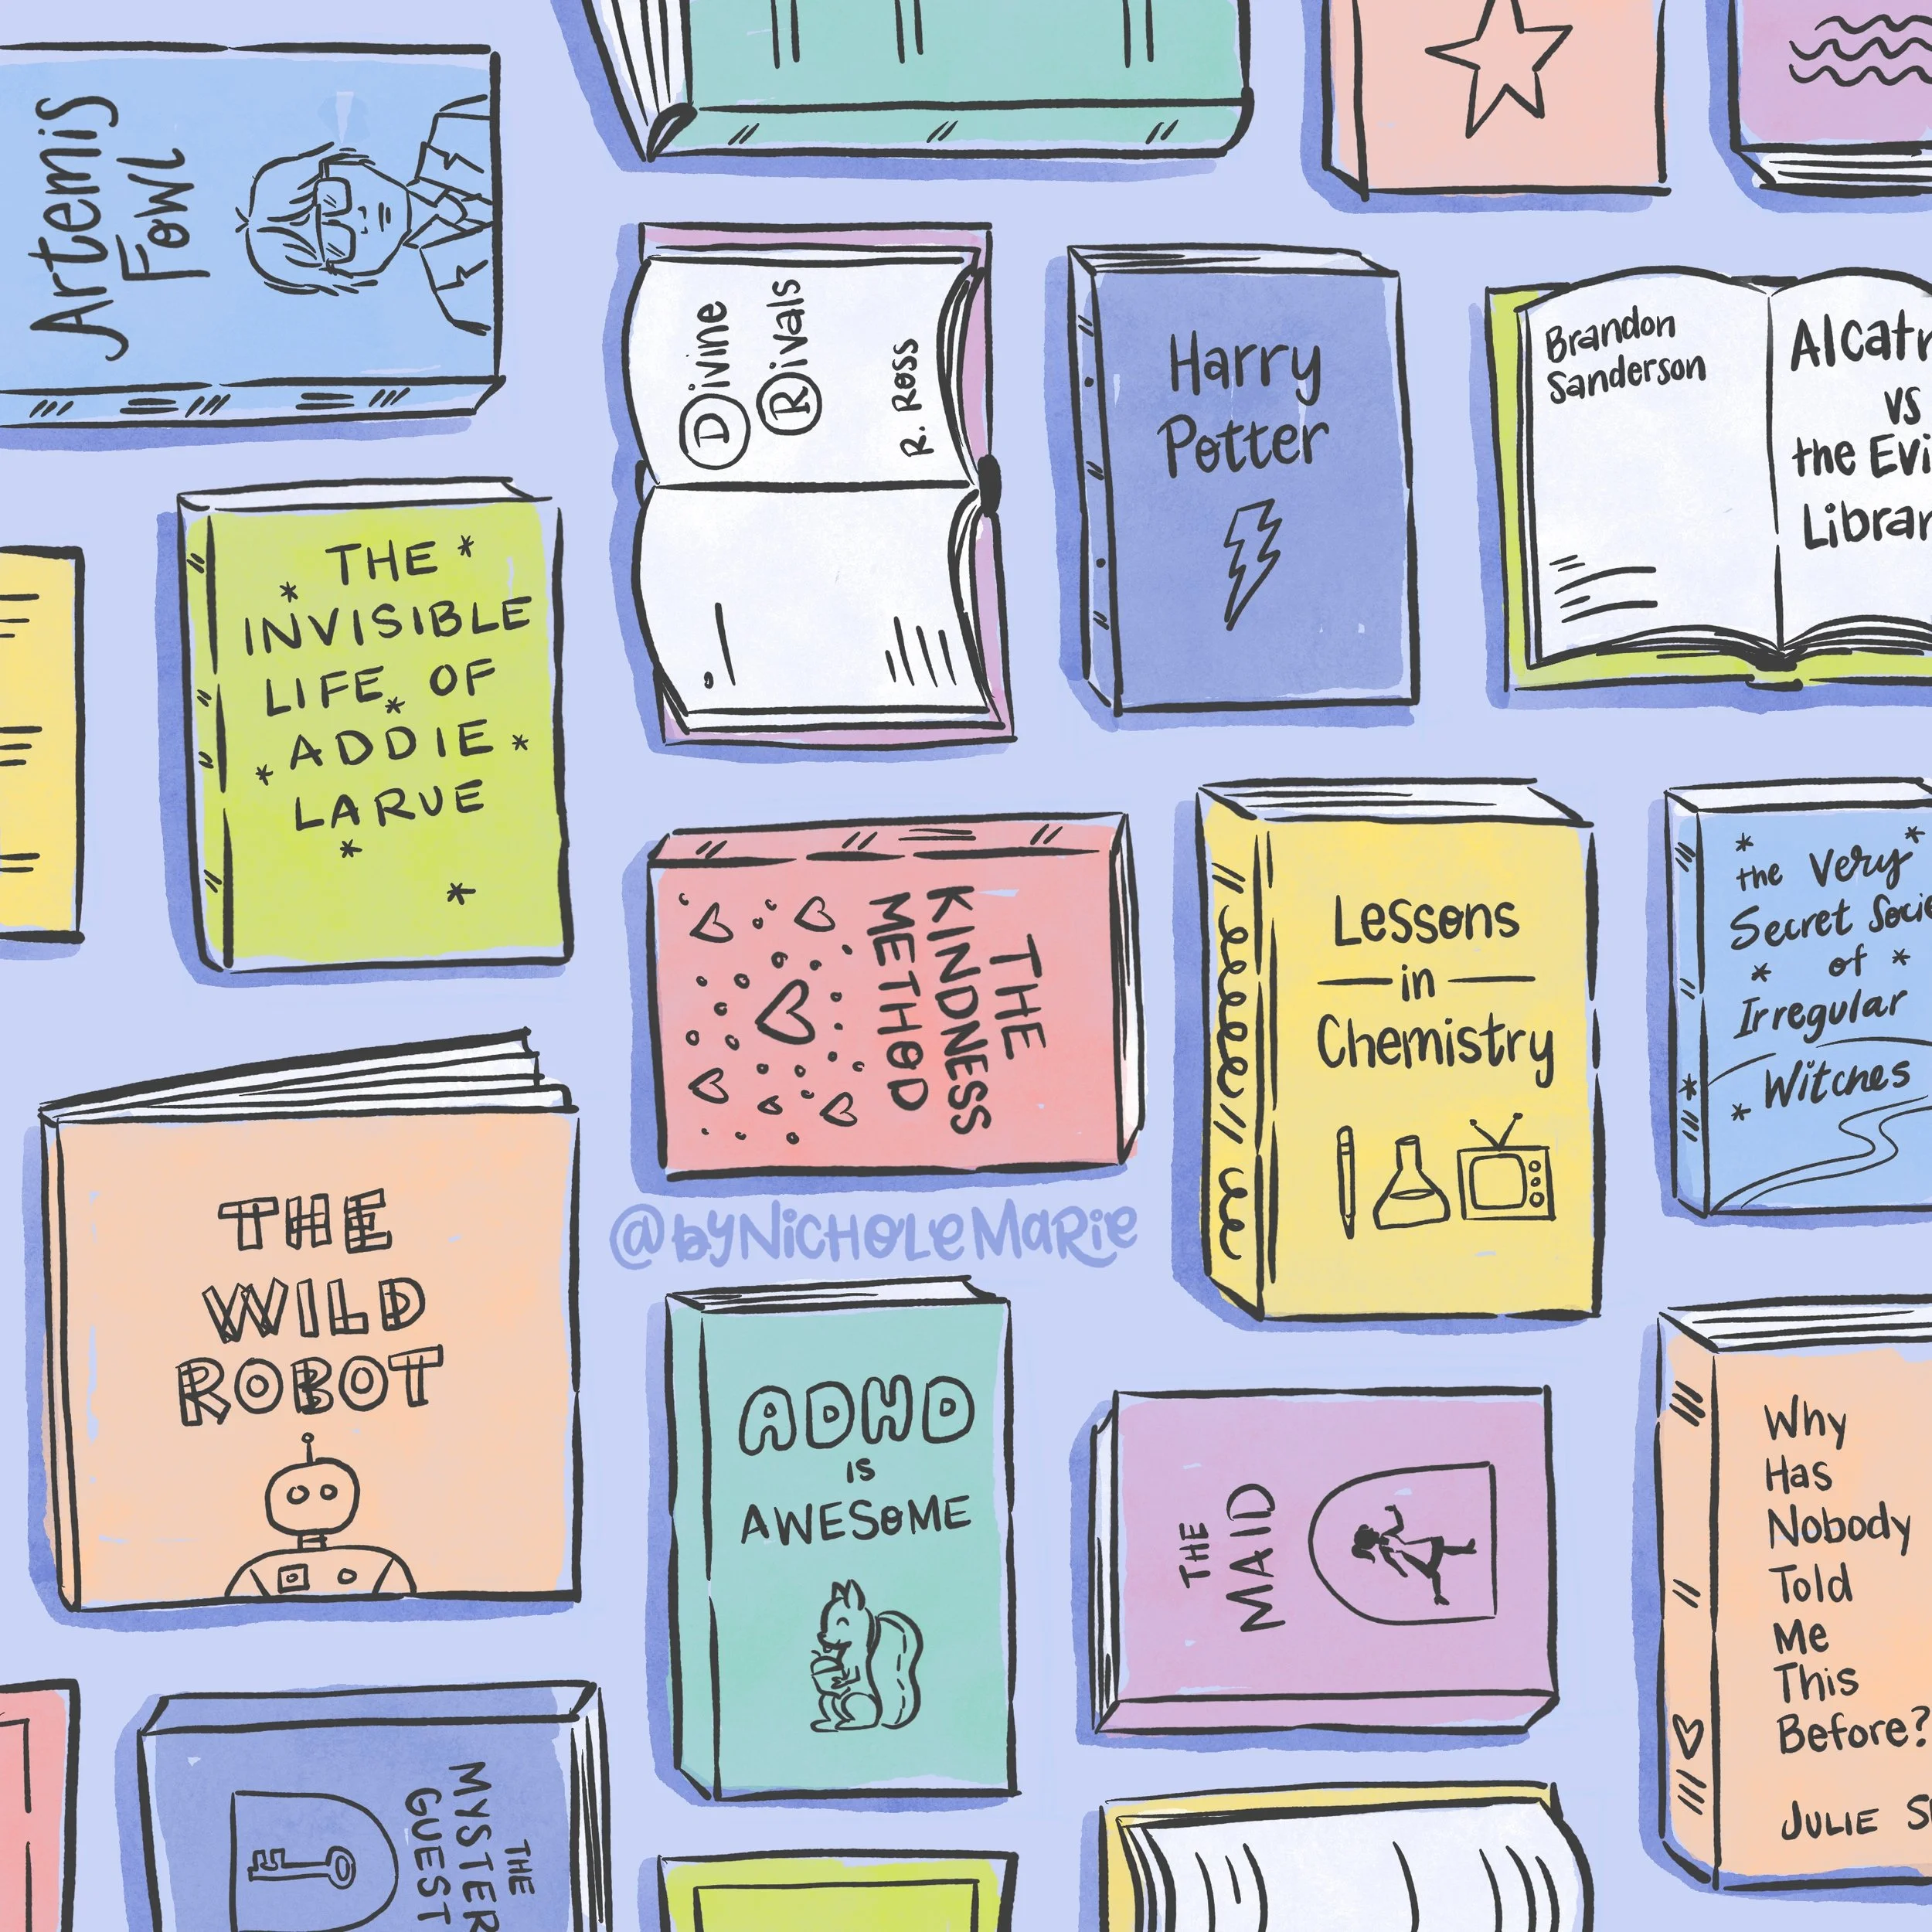 Artemis
Fowl
Divine
Rivals
R. Ross
Harry
Potter
Brandon
Sanderson
Alcatr
vs
the Evi
Librar
THE
INVISIBLE
LIFE OF
ADDIE
LARUE
THE
KINDNESS
METHOD
Lessons
in
Chemistry
the Very
Secret Socie
of
Irregular
Witches
@byNicholeMarie
THE
WILD
ROBOT
ADHD
IS
AWESOME
THE
MAID
Why
Has
Nobody
Told
Me
This
Before?
JULIE S
THE
MYSTER
GUEST